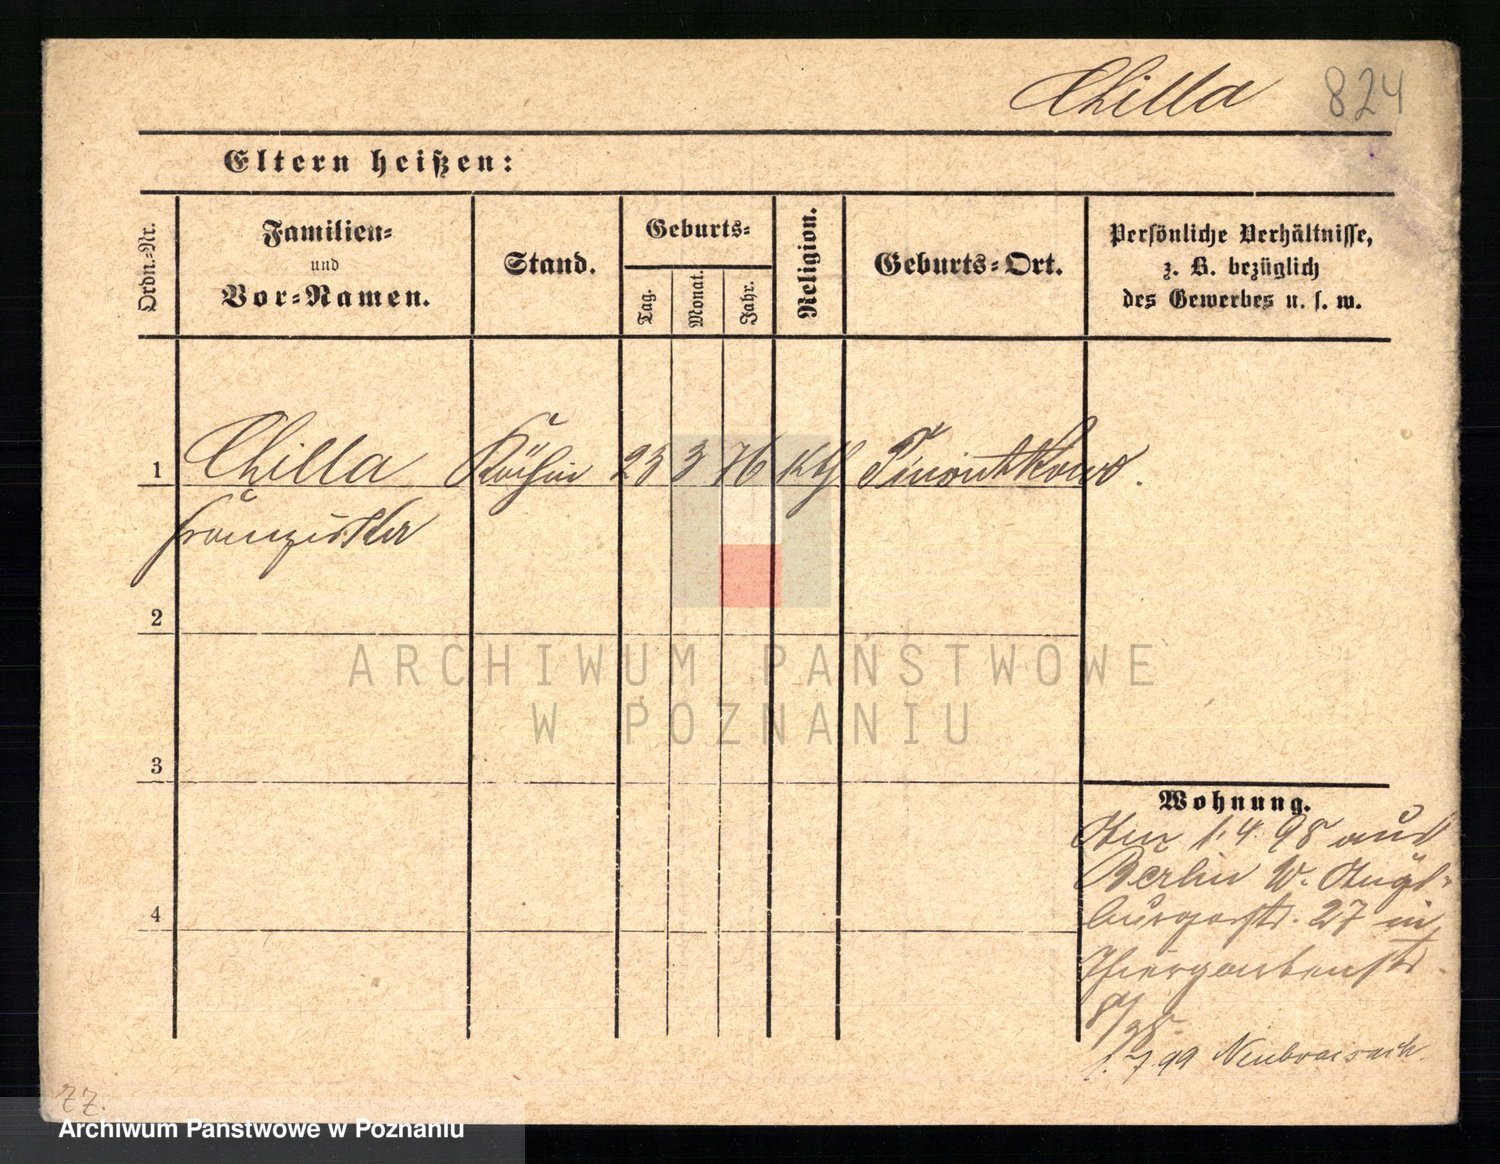 Chilla 824
Eltern heißen:
Ordn.-Nr.
Familien-
und
Vor-Namen.
Stand.
Geburts-
Tag.
Monat.
Jahr.
Religion.
Geburts-Ort.
Persönliche Verhältnisse,
z. B. bezüglich
des Gewerbes u. s. w.
1 Chilla Köchin 23 3 76 kth
Franziska
2
ARCHIWUM PAŃSTWOWE
W POZNANIU
3
Wohnung.
Am 1.4.98 aus
Berlin W. Augs-
burgerstr. 27 in
Thiergartenstr.
8/98
1.7.99 Neubreisach.
4
ZZ.
Archiwum Państwowe w Poznaniu